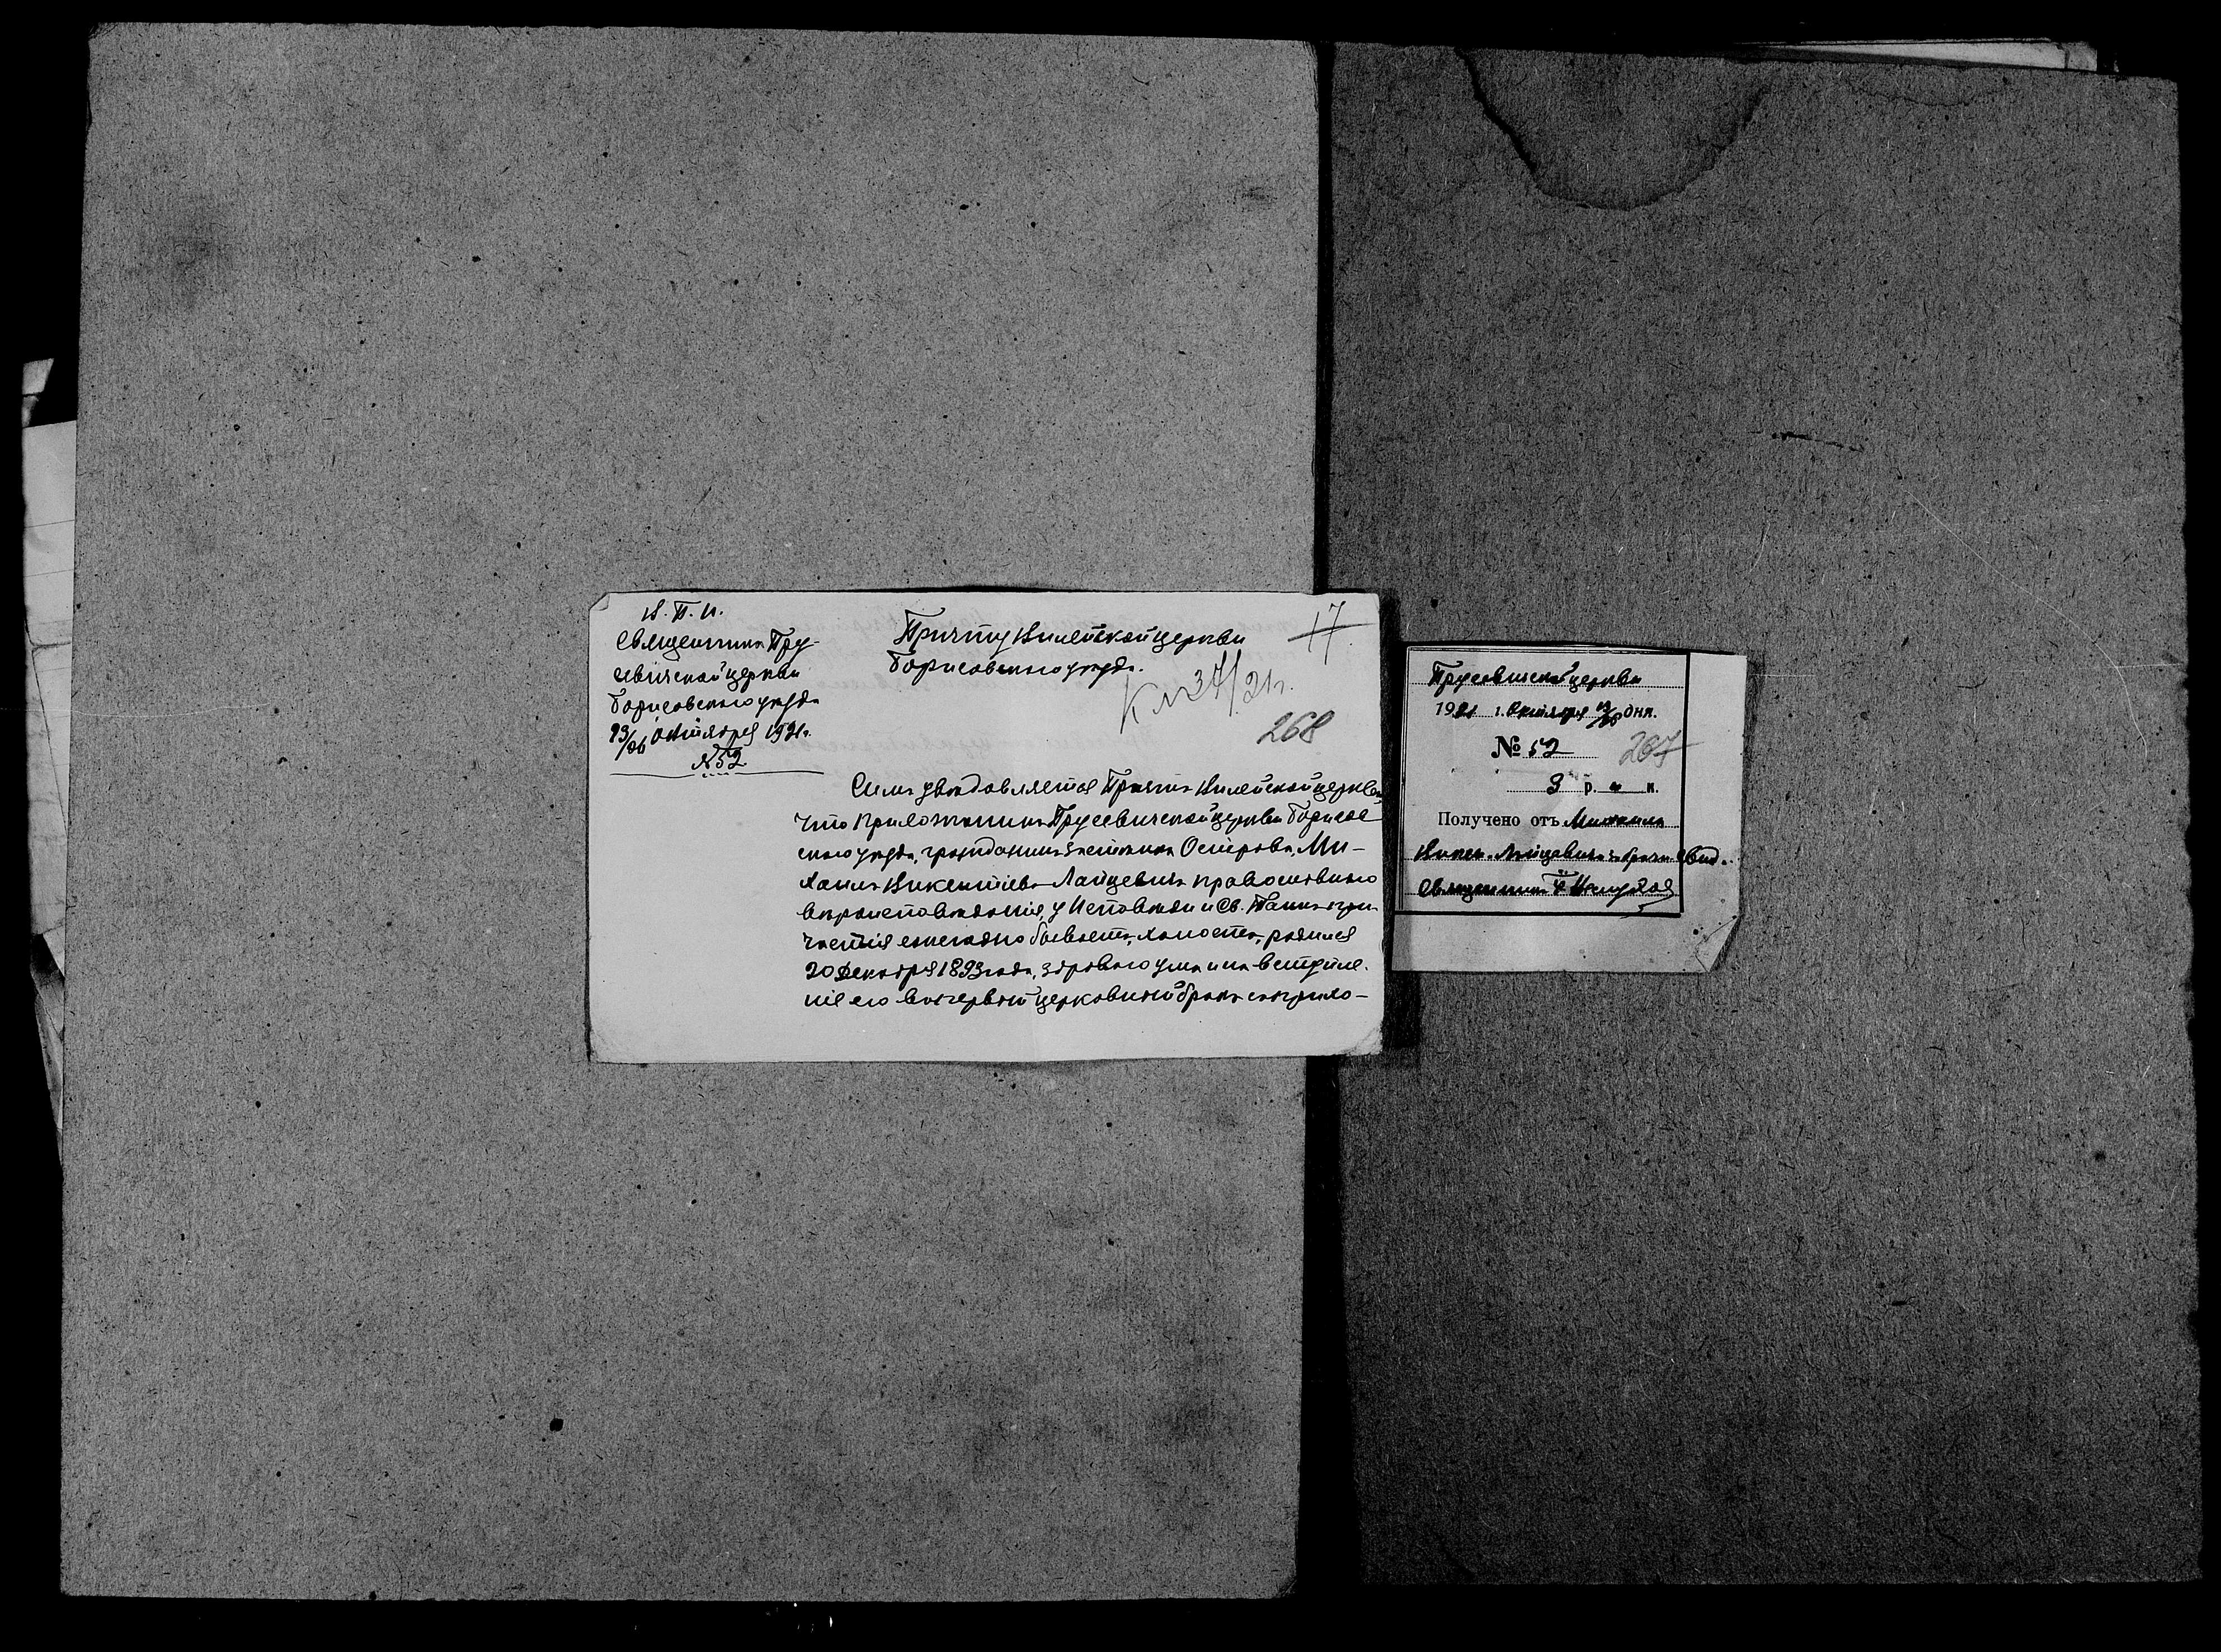 В. П. И.
Священника Тру-
севичской церкви
Борисовскаго уѣзда
13/26 Октября 1921 г.
№ 52
Причту Вилейской церкви
Борисовскаго уѣзда.
17
К № 37/21 г.
268
Симъ увѣдомляется Причтъ Вилейской церкви,
что прихожанинъ Трусевичской церкви Борисов-
скаго уѣзда, гражданинъ застѣнка Острова, Ми-
хаилъ Викентіевъ Лайцевичъ православнаго
вѣроисповѣданія, у Исповѣди и Св. Таинъ при-
частія ежегодно бываетъ, холостъ, родился
20 Декабря 1893 года, здраваго ума и на вступле-
ніе его въ первый церковный бракъ съ прихо-
Трусевичской церкви
1921 г. Октября 13/26 дня.
№ 52
267
9 р. к.
Получено отъ Михаила
Викен. Лайцевича за брачн. свид.
Священникъ